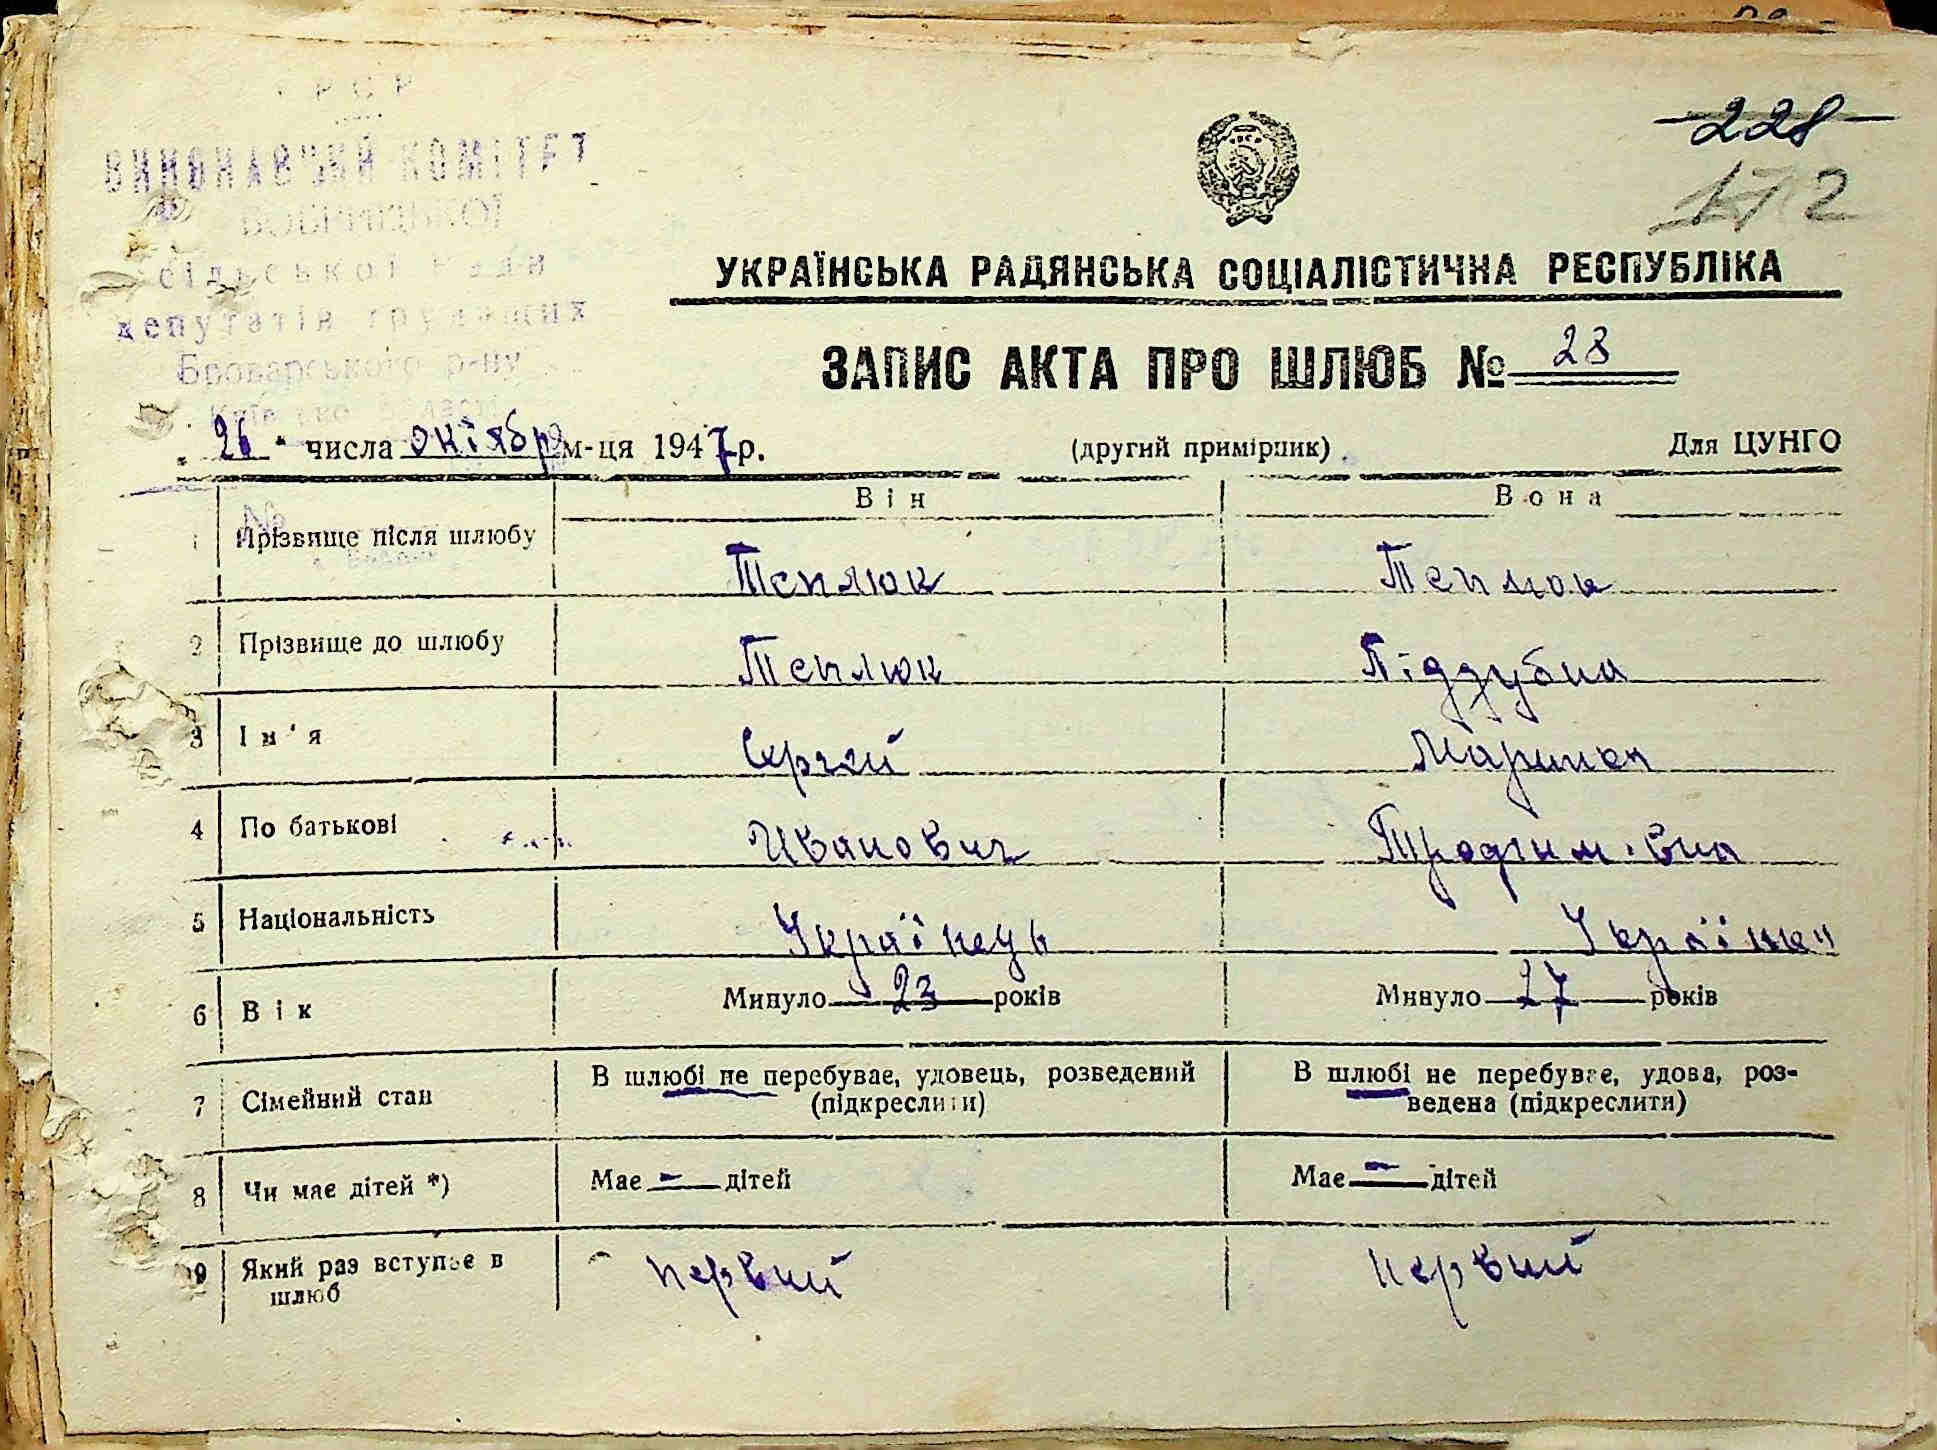 УРСР
ВИКОНАВЧИЙ КОМІТЕТ
сільської Ради
депутатів трудящих
Броварського р-ну
228
172
УКРАЇНСЬКА РАДЯНСЬКА СОЦІАЛІСТИЧНА РЕСПУБЛІКА
ЗАПИС АКТА ПРО ШЛЮБ № 28
26 числа октября м-ця 1947 р. (другий примірник) Для ЦУНГО
Він Вона
1 Прізвище після шлюбу Теплюк Теплюк
2 Прізвище до шлюбу Теплюк Піддубна
3 Ім'я Сергей
4 По батькові Иванович
5 Національність Українець Українк"
6 Вік Минуло 23 років Минуло 27 років
7 Сімейний стан В шлюбі не перебуває, удовець, розведений (підкреслити) В шлюбі не перебуває, удова, розведена (підкреслити)
8 Чи має дітей *) Має — дітей Має — дітей
9 Який раз вступає в шлюб первий первий